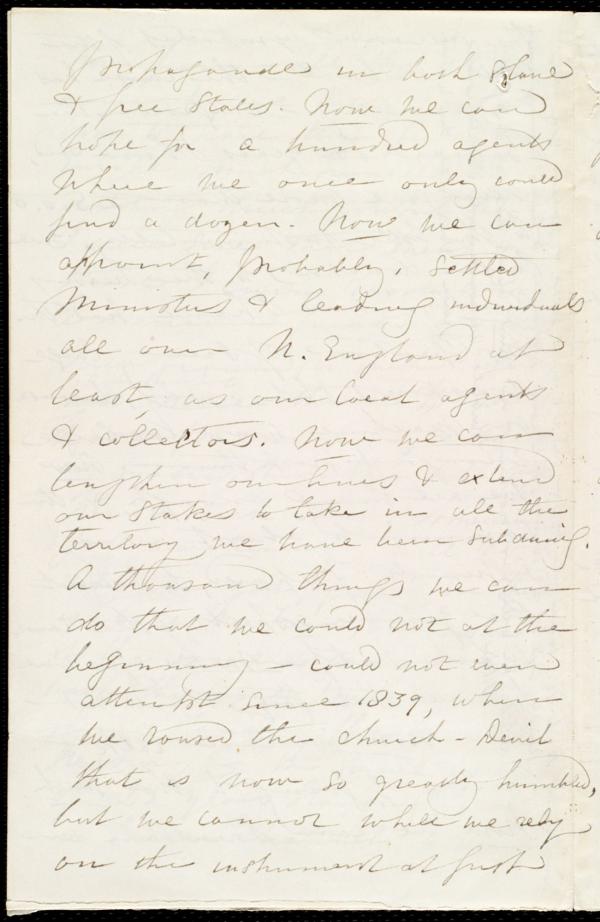 Propaganda in both Slave
& free States. Now we can
hope for a hundred agents
where we once only could
find a dozen. Now we can
appoint, probably, settled
Ministers & leading individuals
all over N. England at
least, as our local agents
& collectors. Now we can
lengthen our lines & extend
our Stakes to take in all the
territory we have been subduing.
A thousand things we can
do that we could not at the
beginning – could not even
attempt since 1839, when
we roused the church-Devil
that is now so greatly humbled,
but we cannot while we rely
on the instrument at first